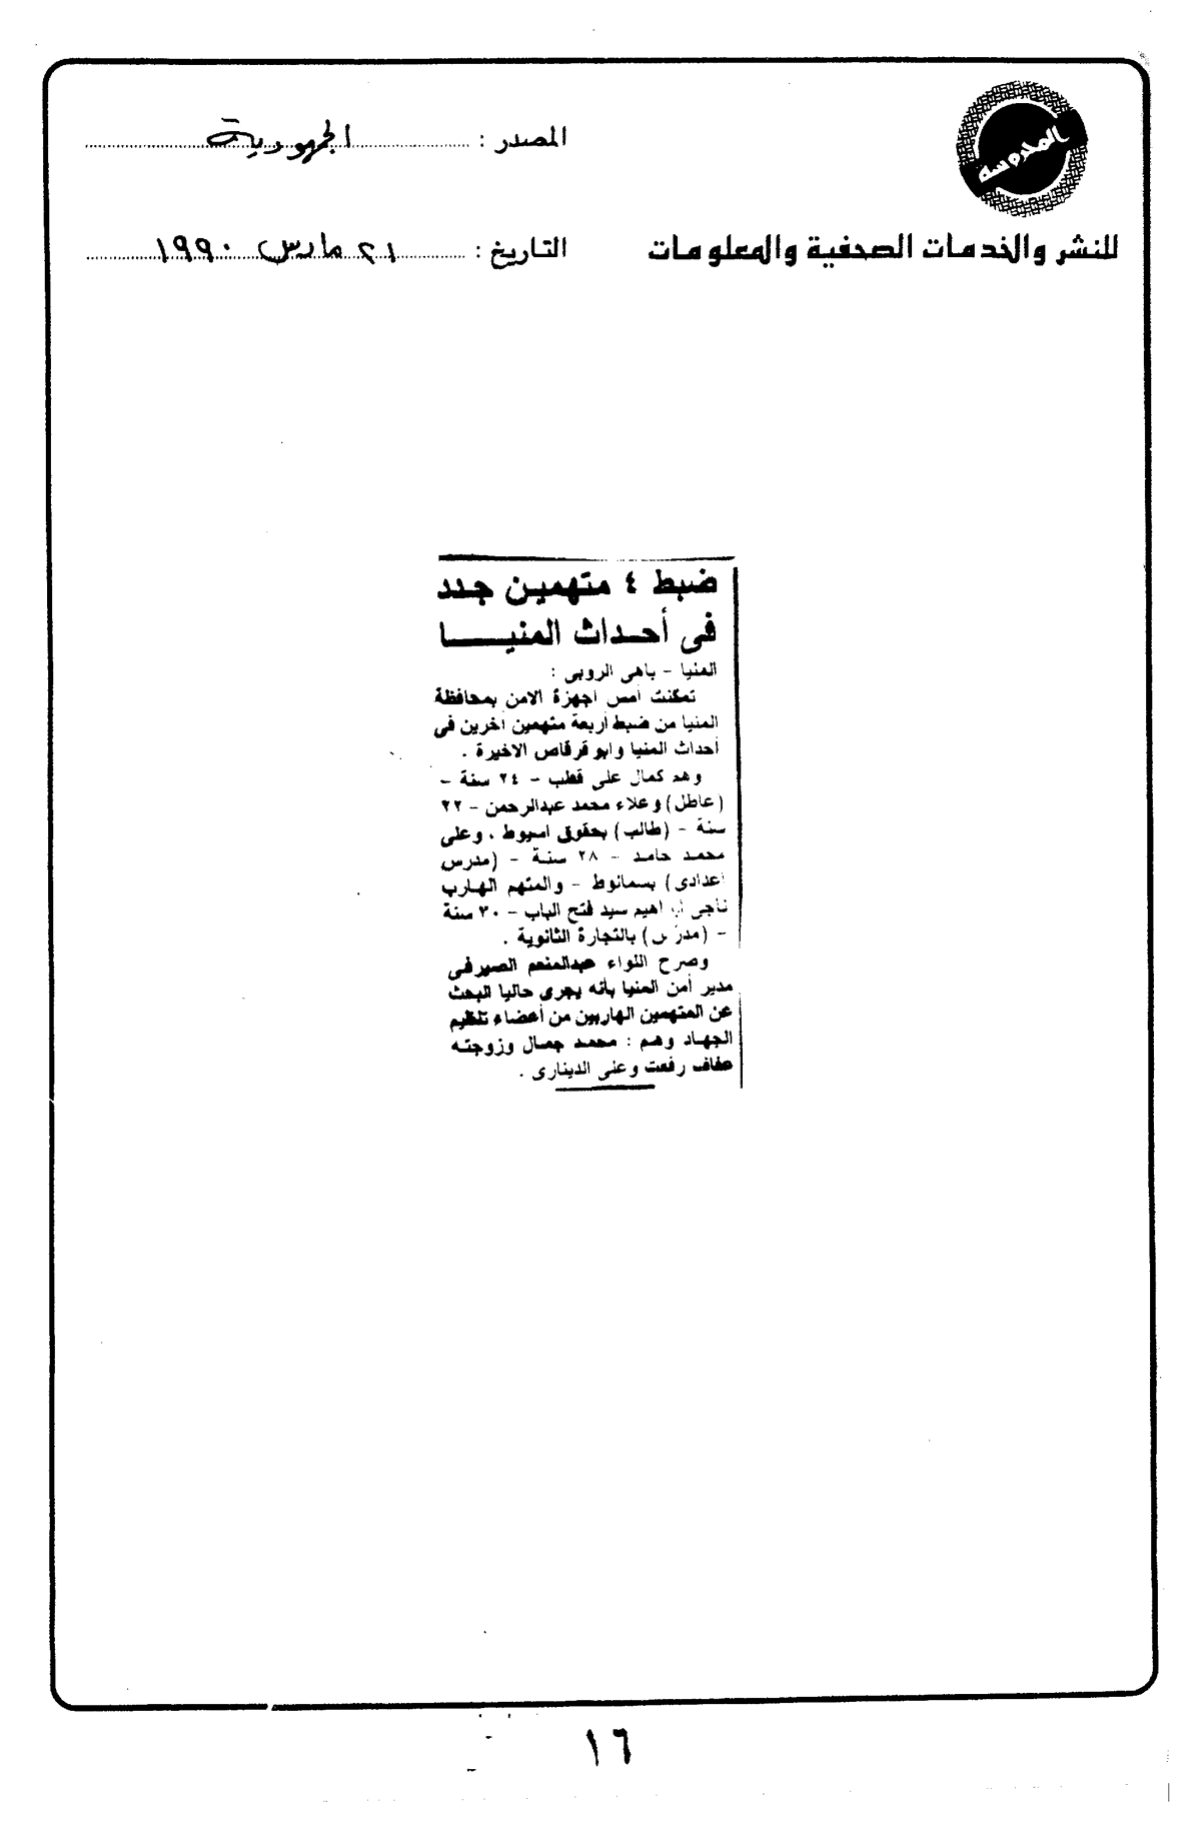 المحروسة
المصدر : الجمهورية
للنشر والخدمات الصحفية والمعلومات
التاريخ : ٢١ مارس ١٩٩٠
ضبط ٤ متهمين جدد
فى أحداث المنيا
المنيا - باهى الروبى :
تمكنت أمس اجهزة الامن بمحافظة
المنيا من ضبط أربعة متهمين آخرين فى
أحداث المنيا وابو قرقاص الاخيرة .
وهم كمال على قطب - ٢٤ سنة -
(عاطل) وعلاء محمد عبدالرحمن - ٢٢
سنة - (طالب) بحقوق اسيوط ، وعلى
محمد حامد - ٢٨ سنة - (مدرس
اعدادى) بسمالوط - والمتهم الهارب
ناجى ابراهيم سيد فتح الباب - ٣٠ سنة
- (مدرس) بالتجارة الثانوية .
وصرح اللواء عبدالمنعم الصيرفى
مدير أمن المنيا بأنه يجرى حاليا البحث
عن المتهمين الهاربين من أعضاء تنظيم
الجهاد وهم : محمد جمال وزوجته
عفاف رفعت وعلى الدينارى .
١٦